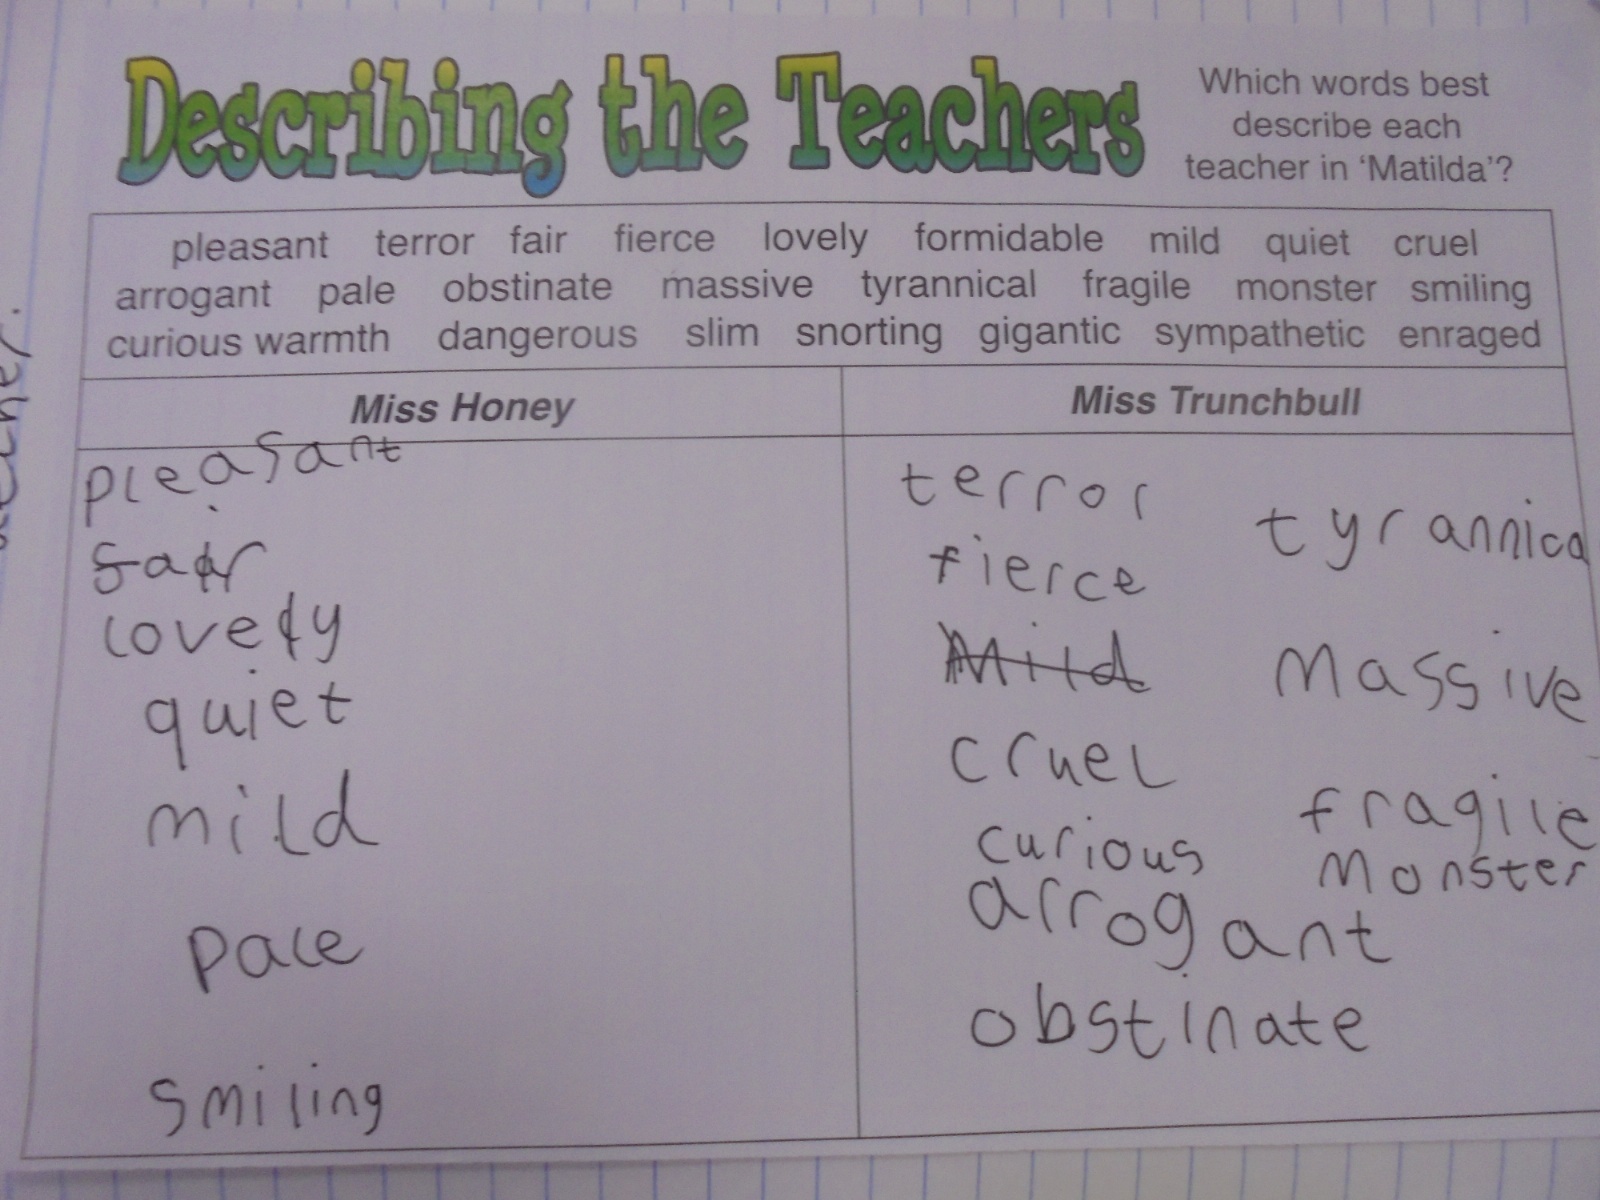 Describing the Teachers
Which words best
describe each
teacher in ‘Matilda’?
pleasant terror fair fierce lovely formidable mild quiet cruel
arrogant pale obstinate massive tyrannical fragile monster smiling
curious warmth dangerous slim snorting gigantic sympathetic enraged
Miss Honey
Miss Trunchbull
pleasant
fair
lovely
quiet
mild
pale
smiling
terror
fierce
Mild
cruel
curious
arrogant
obstinate
tyrannica
Massive
fragile
Monster